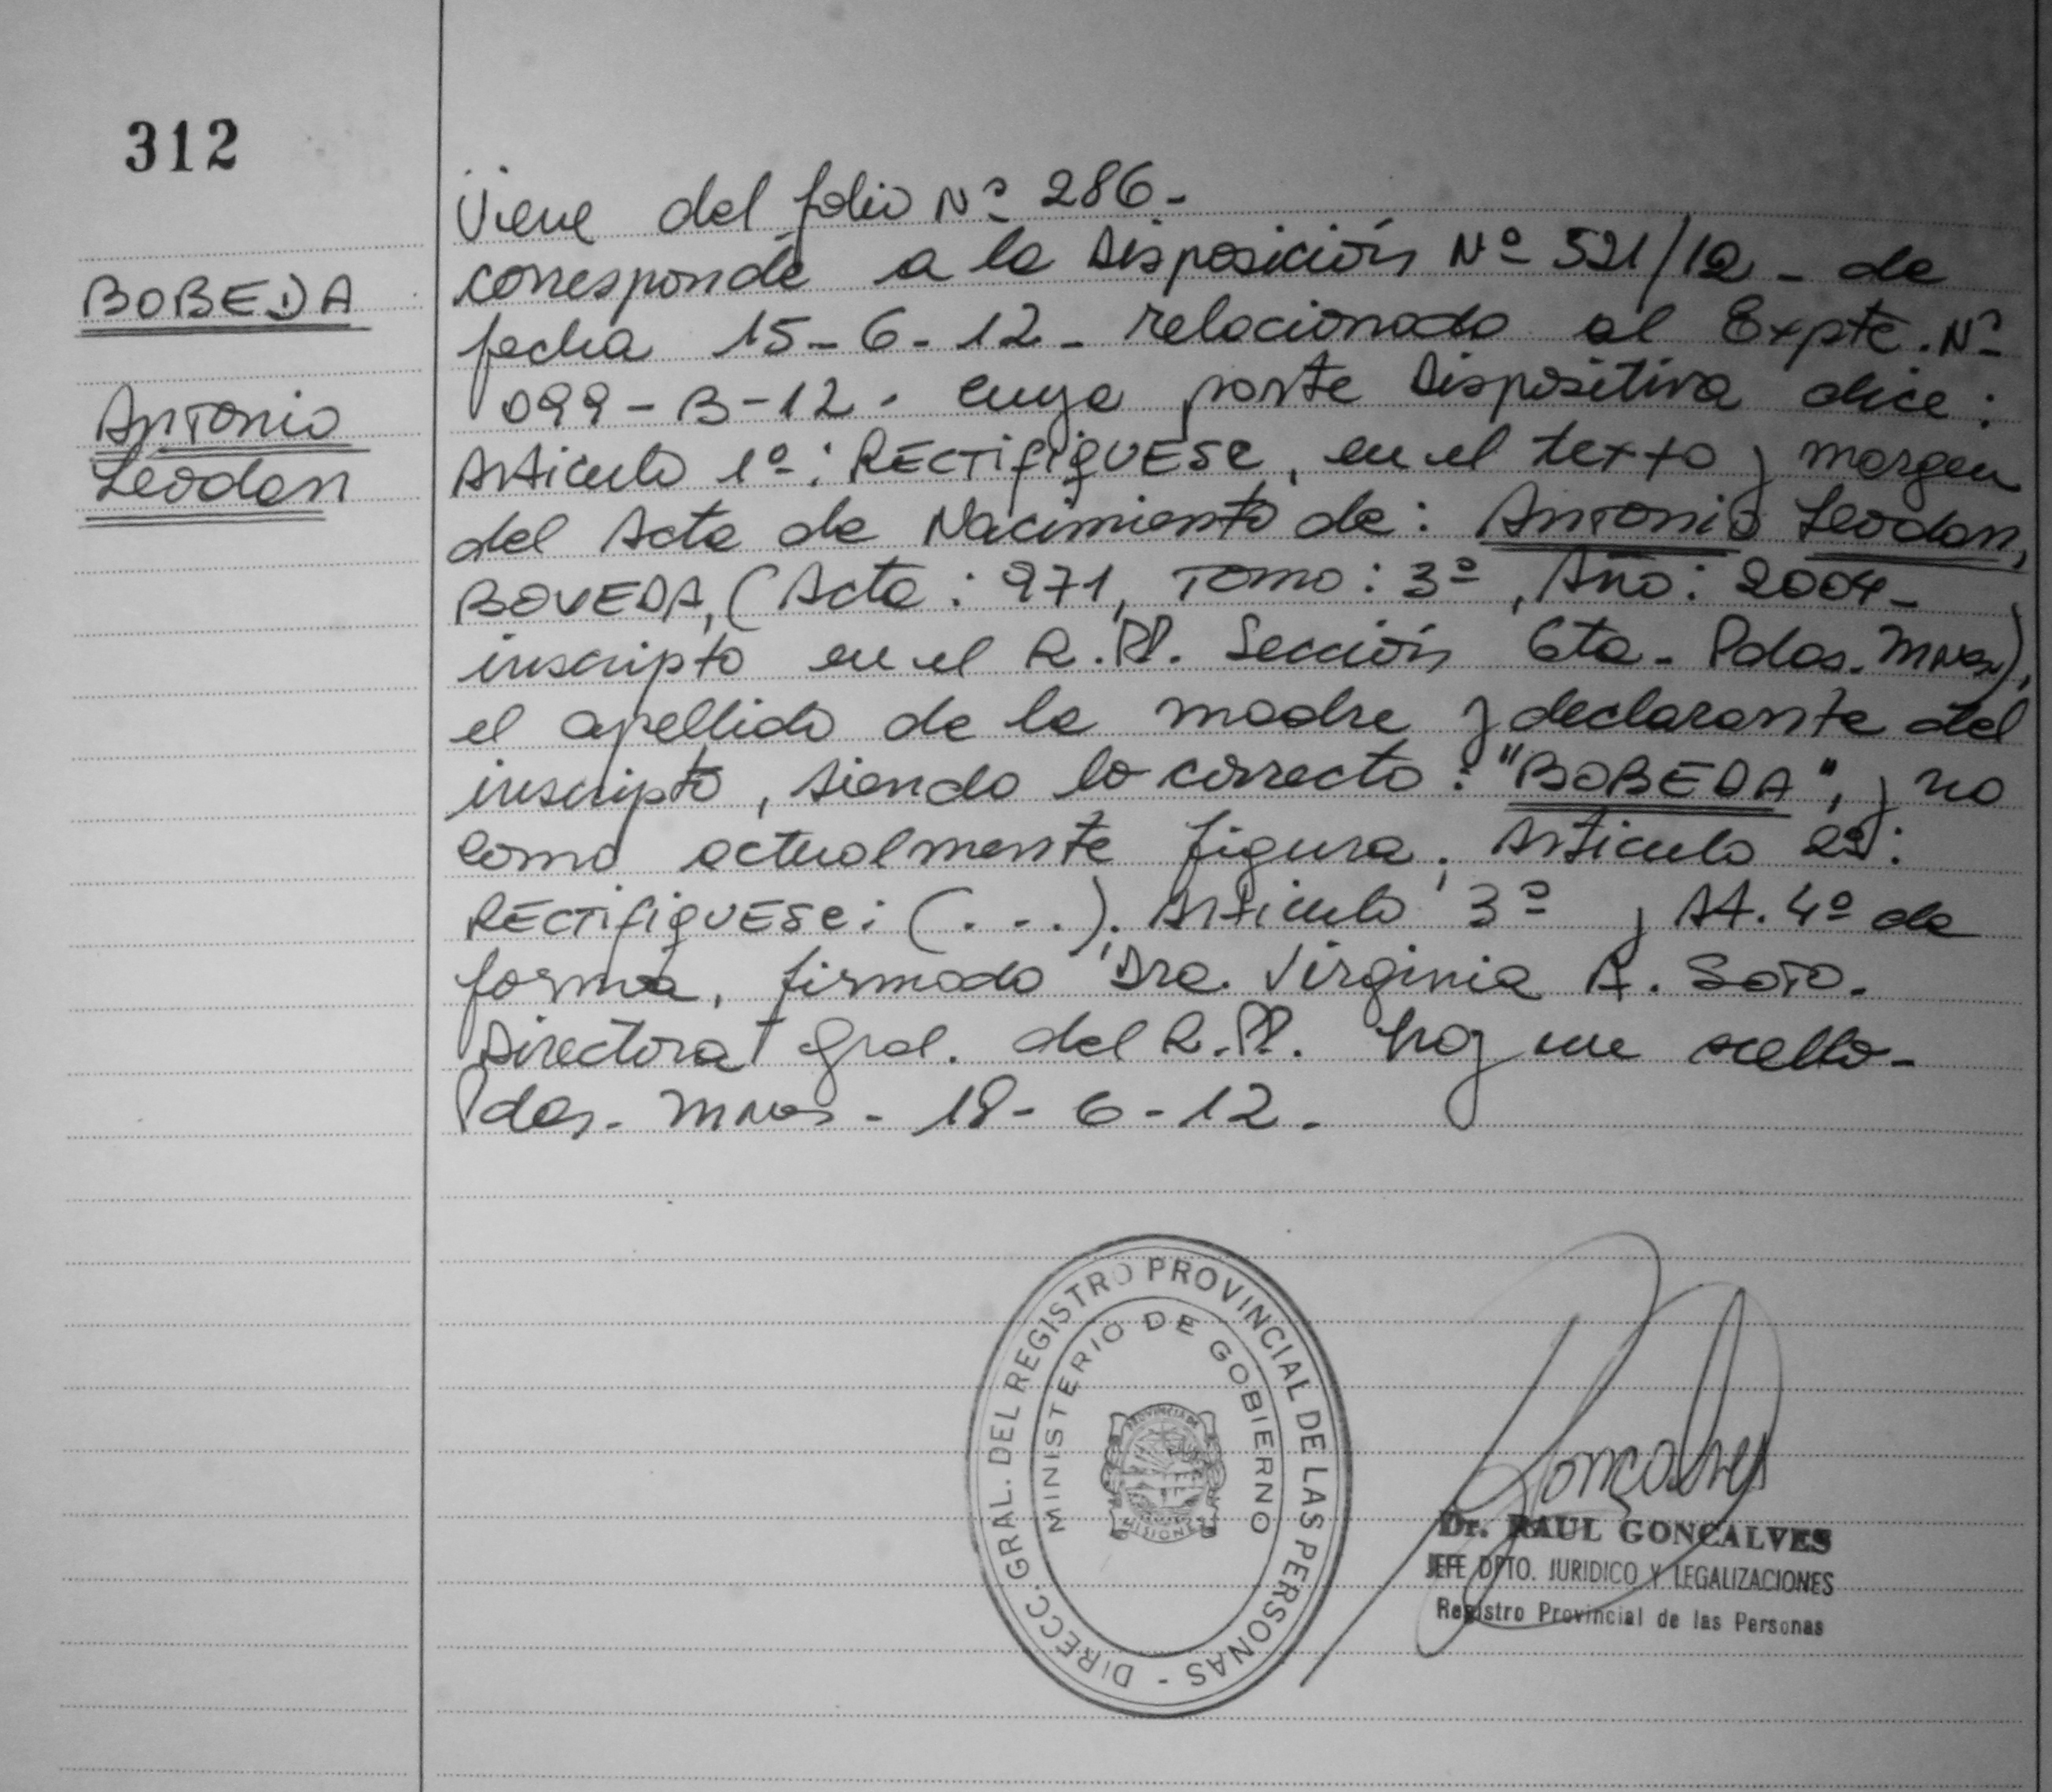 312
BOBEDA
Antonio
Leodan
Viene del folio Nº 286.-
corresponde a la Disposición Nº 521/12 - de
fecha 15-6-12- relacionado al Expte. Nº
099-B-12. cuya parte Dispositiva dice:
Articulo 1º: RECTifiQUESE, en el texto y margen
del Acta de Nacimiento de: Antonio Leodan,
BOVEDA, (Acta: 971, Tomo: 3º, Año: 2004-
inscripto en el R.P.P. Sección 6ta- Pdas. Mnes),
el apellido de la madre y declarante del
inscripto, siendo lo correcto: "BOBEDA", y no
como actualmente figura. Articulo 2º:
RECTifiQUESE: (...). Articulo 3º y At. 4º de
forma, firmado Dra. Virginia A. Soto.
Directora Gral. del R.P.P. hay un sello-
Pdas. Mnes - 18-6-12.
DIRECC. GRAL. DEL REGISTRO PROVINCIAL DE LAS PERSONAS -
MINISTERIO DE GOBIERNO
PROVINCIA DE
MISIONES
Goncalves
Dr. RAUL GONCALVES
JEFE DPTO. JURIDICO Y LEGALIZACIONES
Registro Provincial de las Personas